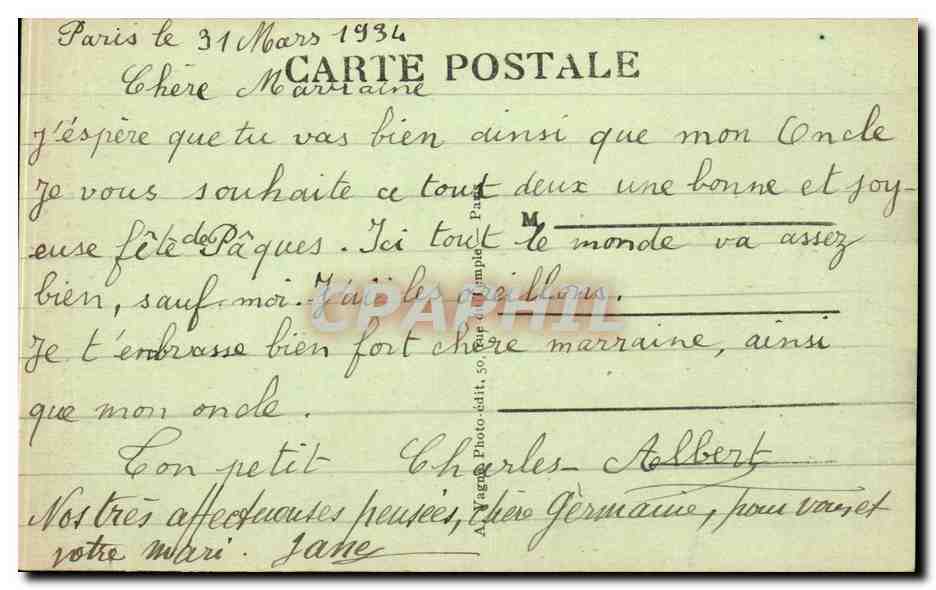 Paris le 31 Mars 1934
CARTE POSTALE
Chère Marraine
J'éspère que tu vas bien ainsi que mon Oncle
Je vous souhaite a tout deux une bonne et joy-
M
euse fête de Pâques. Ici tout le monde va assez
bien, sauf moi. J'ai les oreillons.
CPAPHIL
Je t'embrasse bien fort chère marraine, ainsi
que mon oncle.
Ton petit Charles-Albert
Nos très affectueuses pensées, chère Germaine, pour vous et
votre mari. Jane
Photo-édit, 50, rue du Temple - Paris